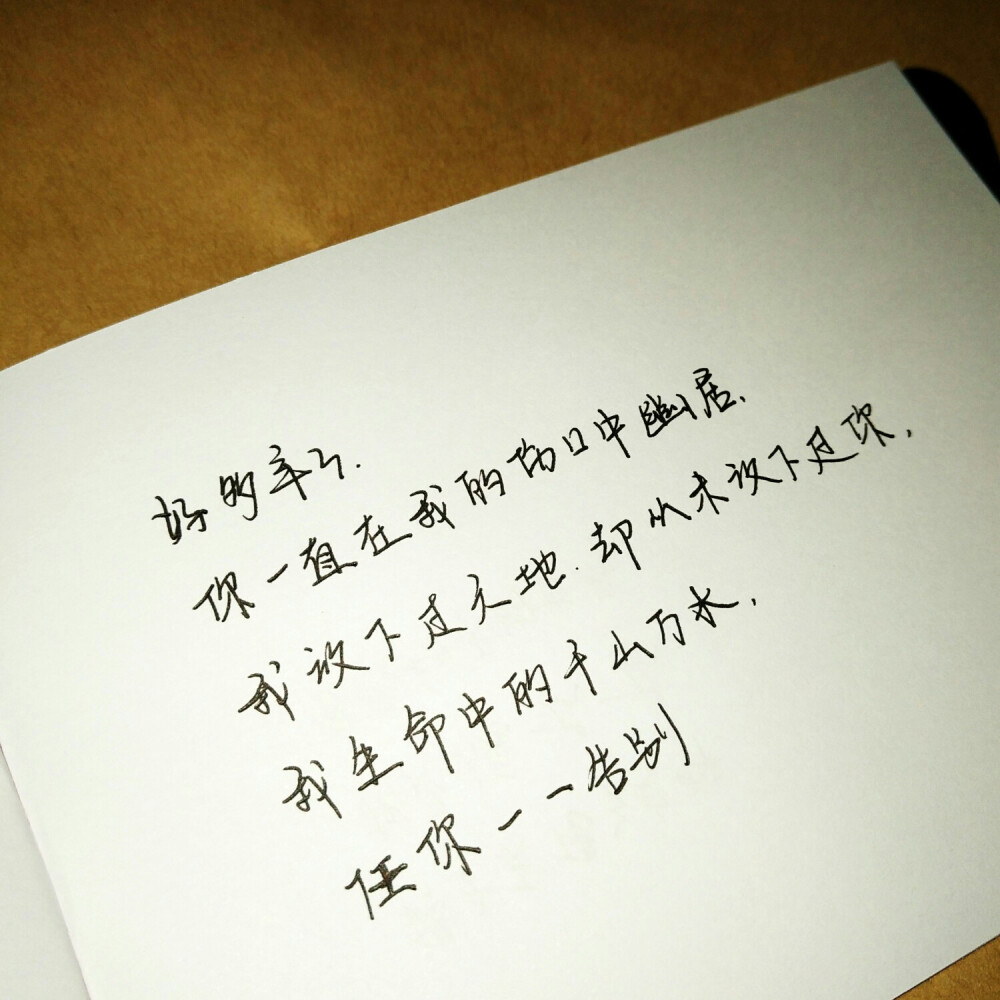 好多年了.
你一直在我的伤口中幽居.
我放下过天地.却从未放下过你,
我生命中的千山万水,
任你一一告别